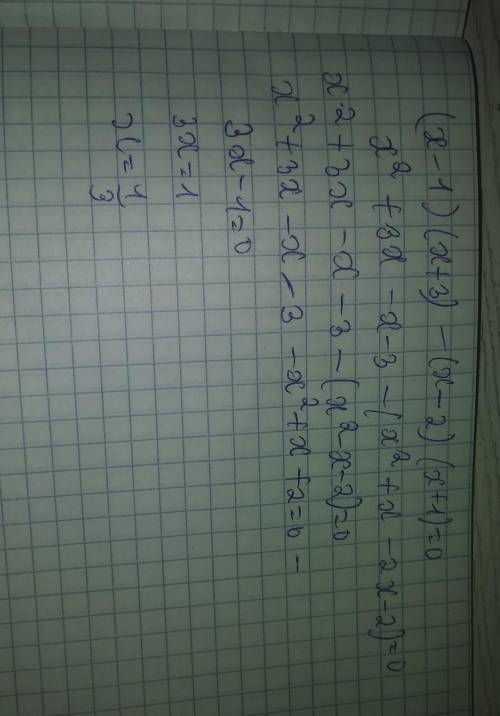 (x-1)(x+3)-(x-2)(x+1)=0
x²+3x-x-3-(x²+x-2x-2)=0
x²+3x-x-3-(x²-x-2)=0
x²+3x-x-3-x²+x+2=0-
3x-1=0
3x=1
x=1/3